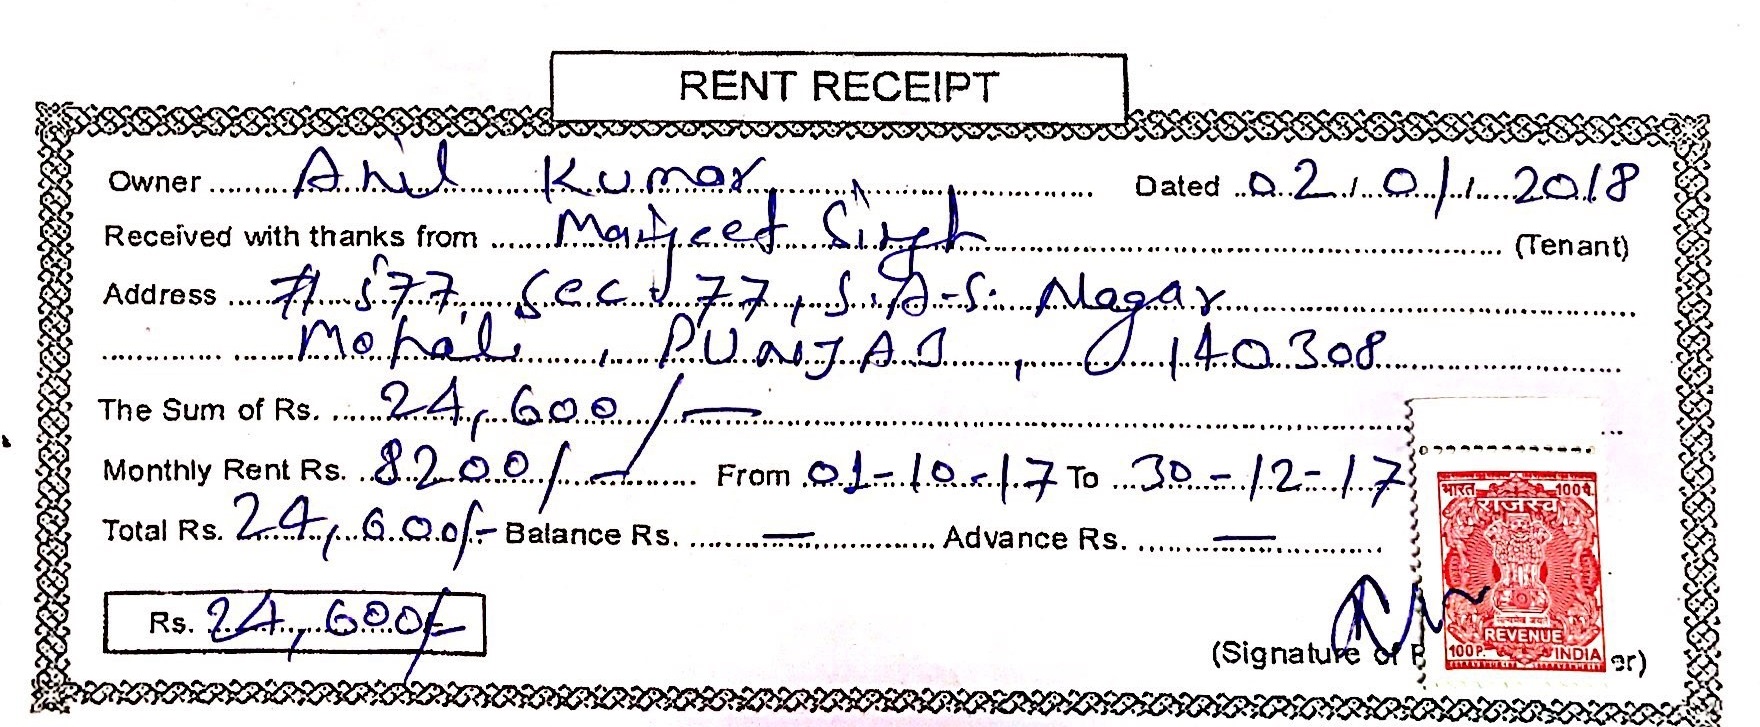 RENT RECEIPT
Owner Anil Kumar Dated 02/01/2018
Received with thanks from Manjeet Singh (Tenant)
Address # 577, Sec - 77, S.A.S. Nagar
Mohali, PUNJAB, 140308
The Sum of Rs. 24,600/-
Monthly Rent Rs. 8200/- From 01-10-17 To 30-12-17
Total Rs. 24,600/- Balance Rs. — Advance Rs. —
Rs. 24,600/-
(Signature of
er)
भारत 100 पै.
राजस्व
REVENUE
100 P. INDIA